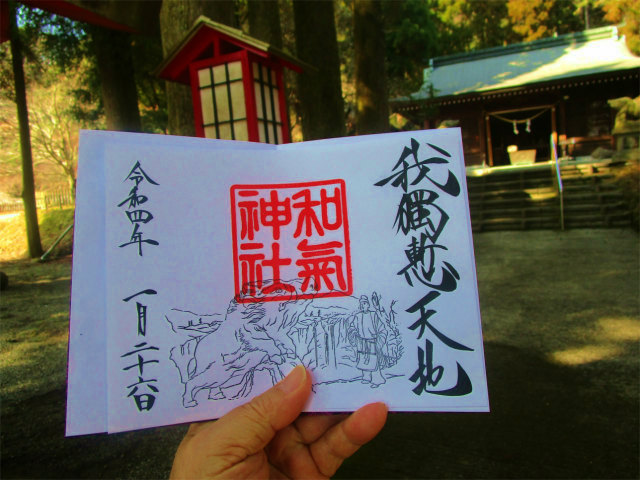 我獨慙天地
和氣
神社
令和四年
一月二十六日